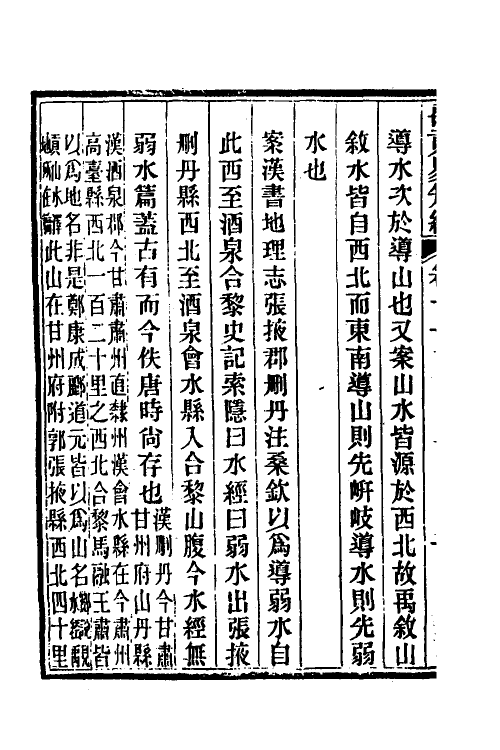 導水次於導山也又案山水皆源於西北故禹敘山
敘水皆自西北而東南導山則先岍岐導水則先弱
水也
案漢書地理志張掖郡刪丹注桑欽以爲導弱水自
此西至酒泉合黎史記索隱曰水經曰弱水出張掖
刪丹縣西北至酒泉會水縣入合黎山腹今水經無
弱水篇蓋古有而今佚唐時尙存也漢刪丹今甘肅
甘州府山丹縣
漢酒泉郡今甘肅肅州直隸州漢會水縣在今肅州
高臺縣西北一百二十里之西北合黎馬融王肅皆
以爲地名非是鄭康成酈道元皆以爲山名
此山在甘州府附郭張掖縣西北四十里